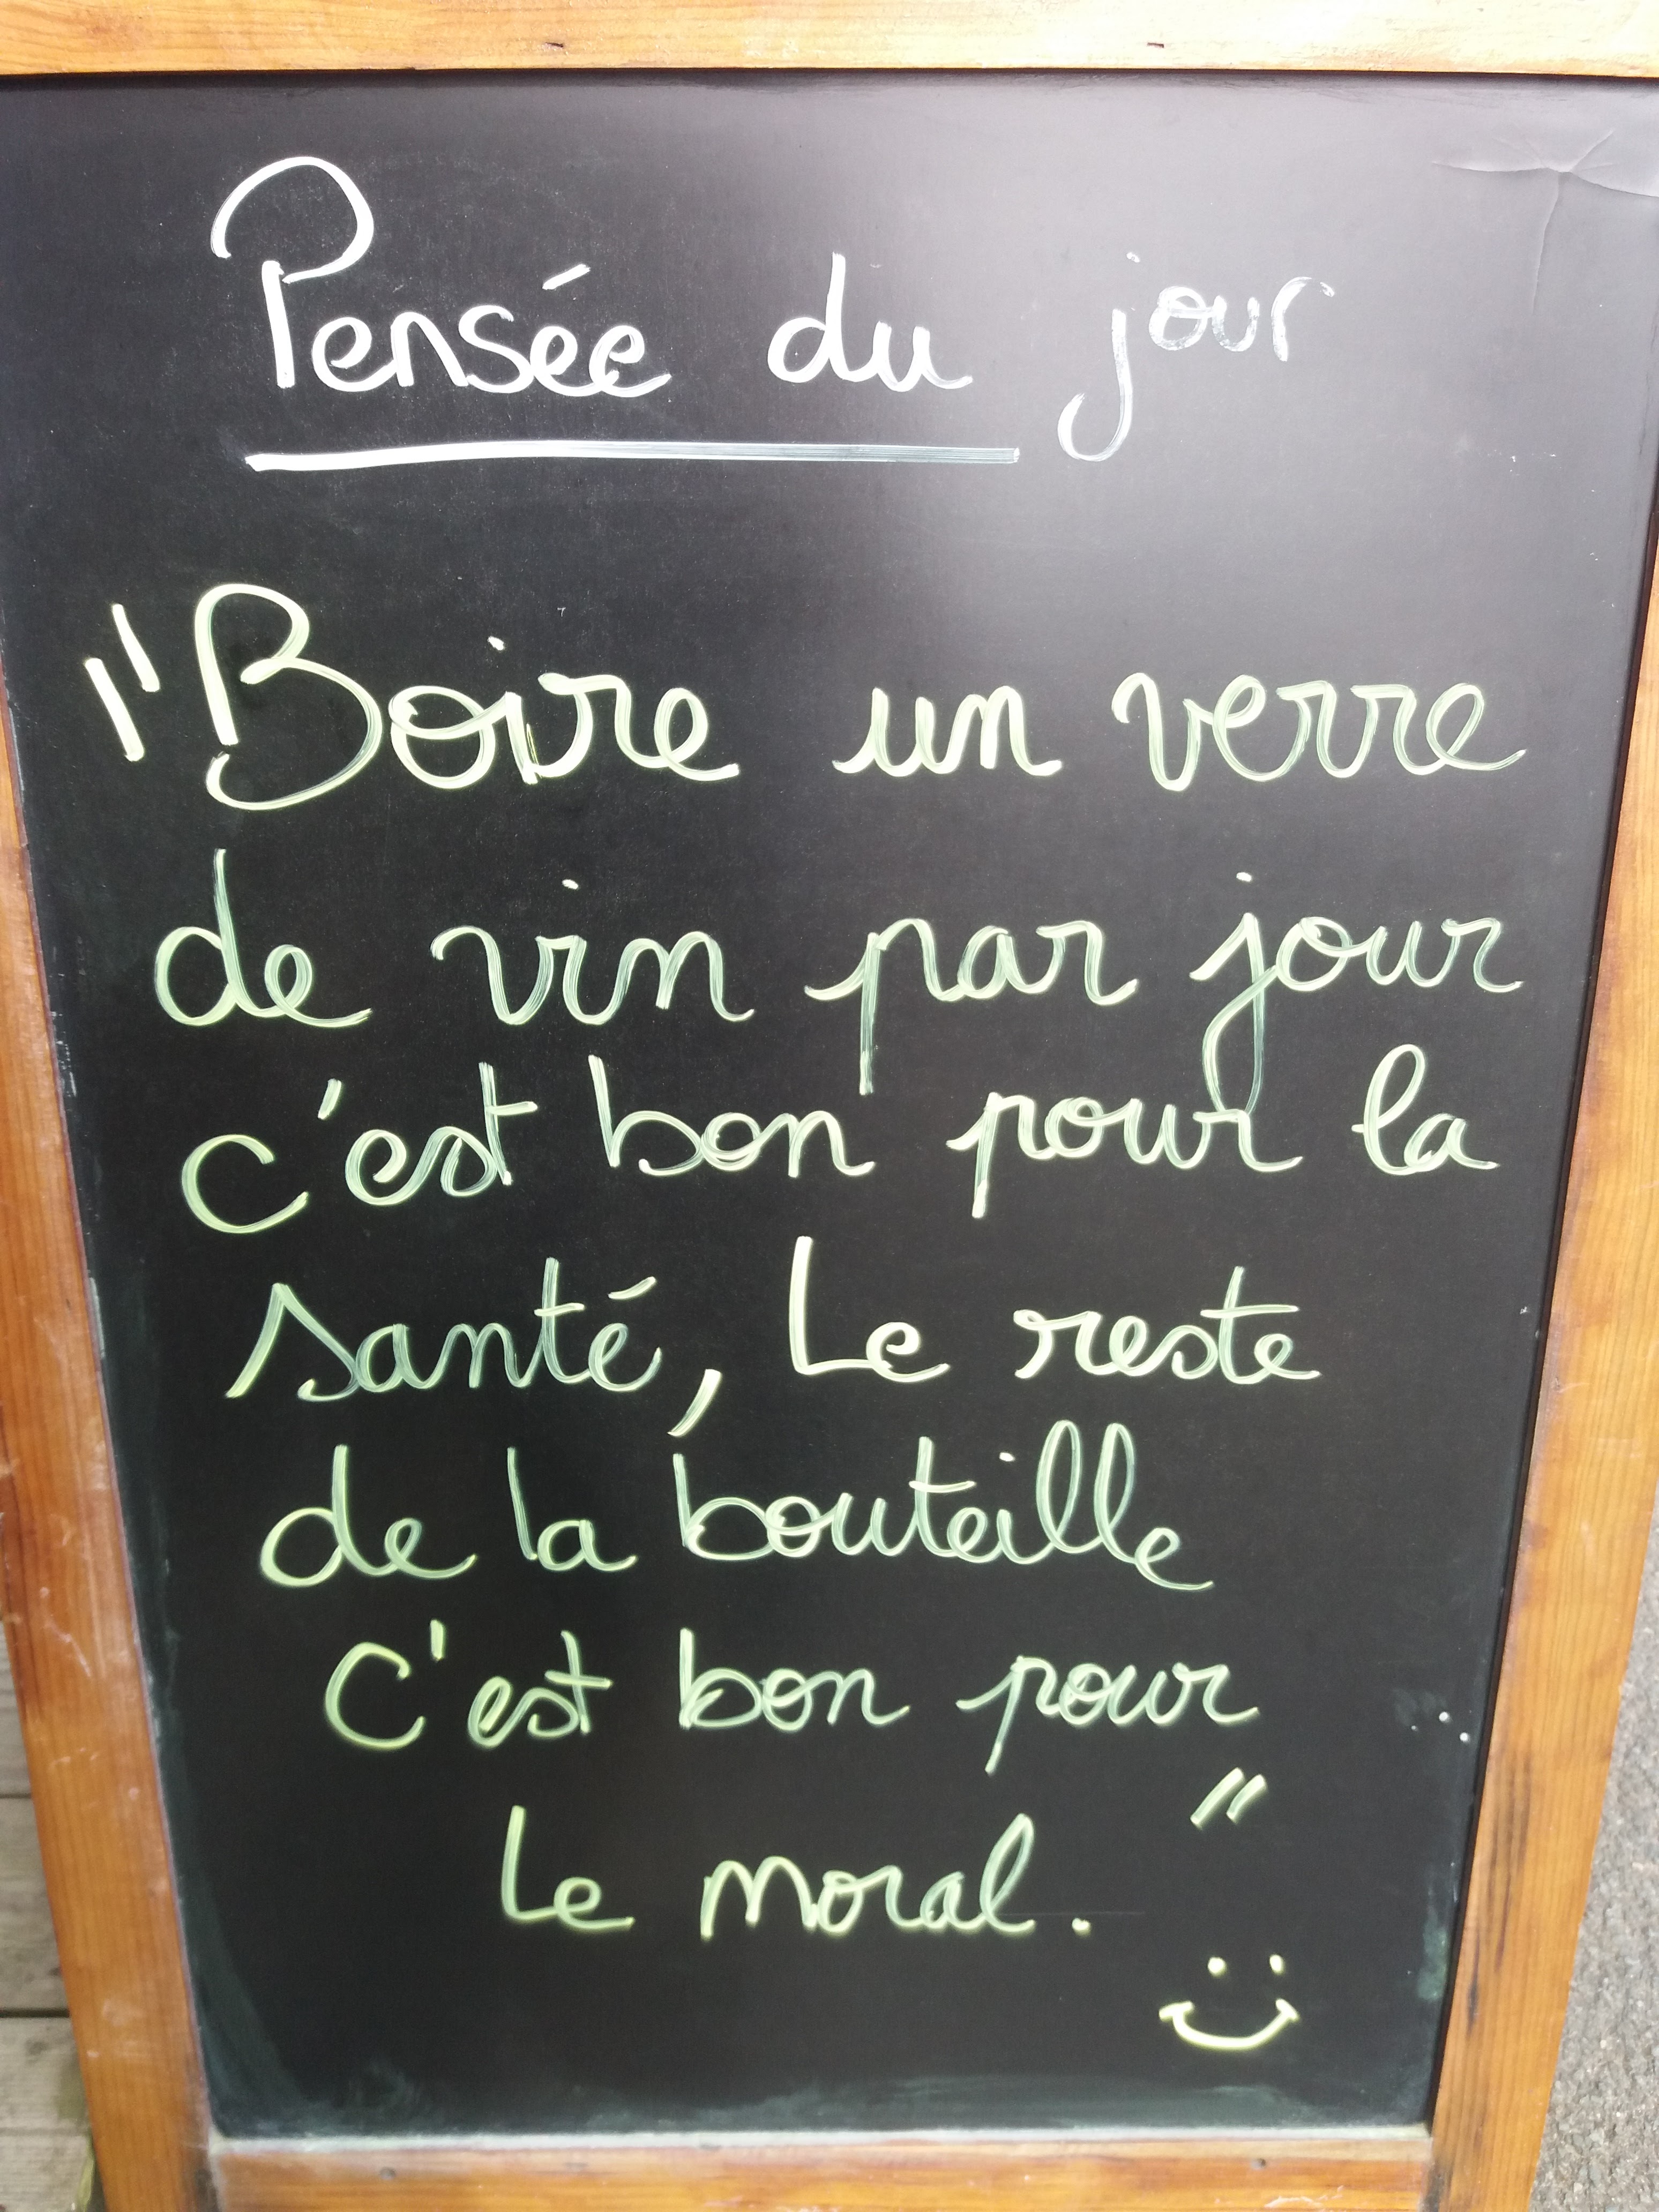 Pensée du jour
"Boire un verre
de vin par jour
c'est bon pour la
santé, Le reste
de la bouteille
C'est bon pour
Le moral."